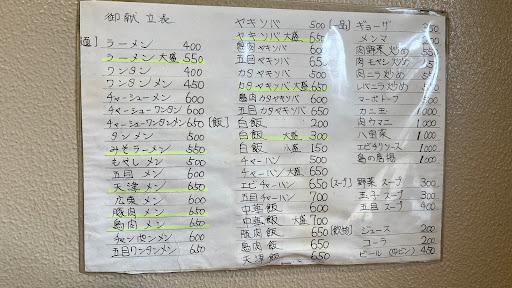 御献立表
[麺]
ラーメン 400
ラーメン大盛 550
ワンタン 400
ワンタンメン 450
チャーシューメン 600
チャーシューワンタン 600
チャーシューワンタンメン 650
タンメン 500
みそラーメン 550
もやしメン 500
五目メン 600
天津メン 650
広東メン 600
豚肉メン 650
鳥肉メン 650
チャンポンメン 600
五目ワンタンメン 650
ヤキソバ 500
ヤキソバ大盛 650
鳥肉ヤキソバ 650
五目ヤキソバ 650
カタヤキソバ 500
カタヤキソバ大盛 650
鳥肉カタヤキソバ 650
五目カタヤキソバ 650
[飯]
白飯 200
白飯 大盛 300
白飯 小盛 150
チャーハン 500
チャーハン大盛 650
エビチャーハン 650
五目チャーハン 700
中華飯 600
中華飯大盛 700
豚肉飯 650
鳥肉飯 650
天津飯 650
[一品]
ギョーザ
メンマ
肉野菜炒め
肉モヤシ炒め
肉ニラ炒め
レバニラ炒め
マーボドーフ
カニ玉
肉ウマニ 1,000
八宝菜 1,000
エビチリソース 1,000
鳥の唐揚 1,000
[スープ]
野菜スープ 300
玉子スープ 300
五目スープ 400
[飲物]
ジュース 200
コーラ 200
ビール(中ビン) 450